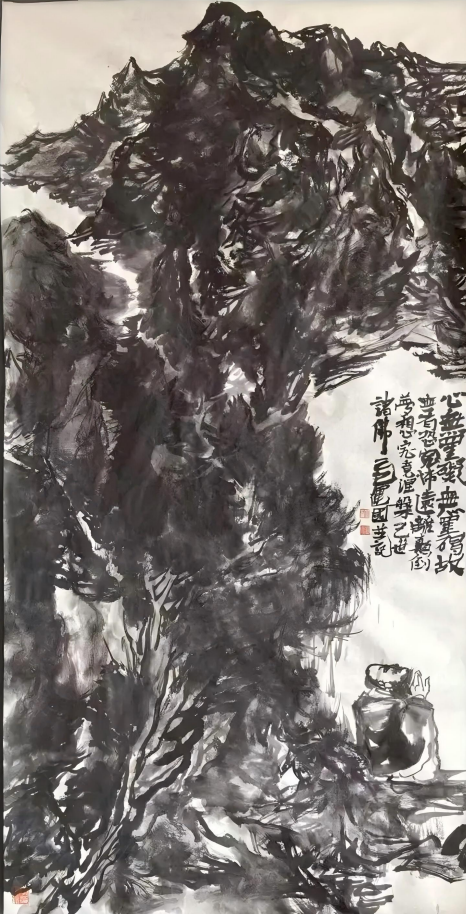 心無罣礙無罣碍故
無有恐怖遠離顛倒
夢想究竟涅槃三世
諸佛 國並記